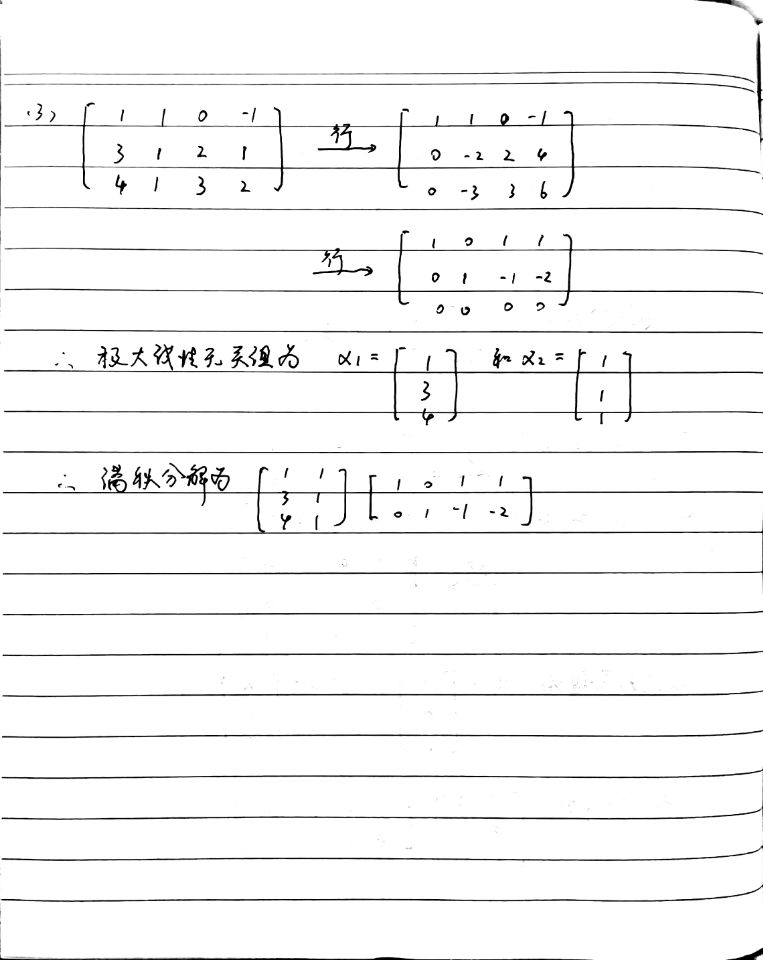 (3) [ 1 1 0 -1 ; 3 1 2 1 ; 4 1 3 2 ] 行→ [ 1 1 0 -1 ; 0 -2 2 4 ; 0 -3 3 6 ]
行→ [ 1 0 1 1 ; 0 1 -1 -2 ; 0 0 0 0 ]
∴ 极大线性无关组为 α1 = [ 1 ; 3 ; 4 ] 和 α2 = [ 1 ; 1 ; 1 ]
∴ 满秩分解为 [ 1 1 ; 3 1 ; 4 1 ] [ 1 0 1 1 ; 0 1 -1 -2 ]